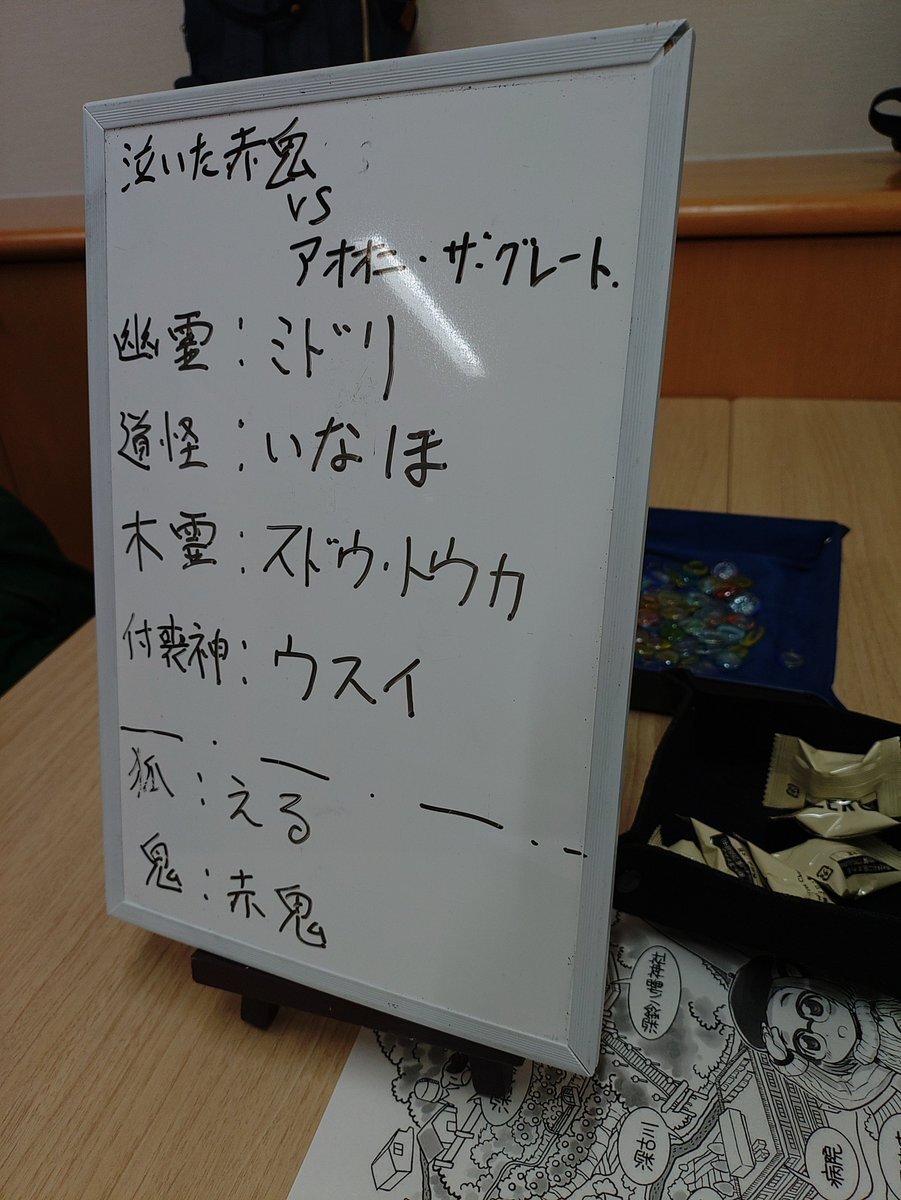 泣いた赤鬼
vs
アオオニ・ザ・グレート.
幽霊:ミドリ
道怪:いなほ
木霊:スドウ・トウカ
付喪神:ウスイ
狐:える
鬼:赤鬼
深鈴八幡神社
深古川
病院